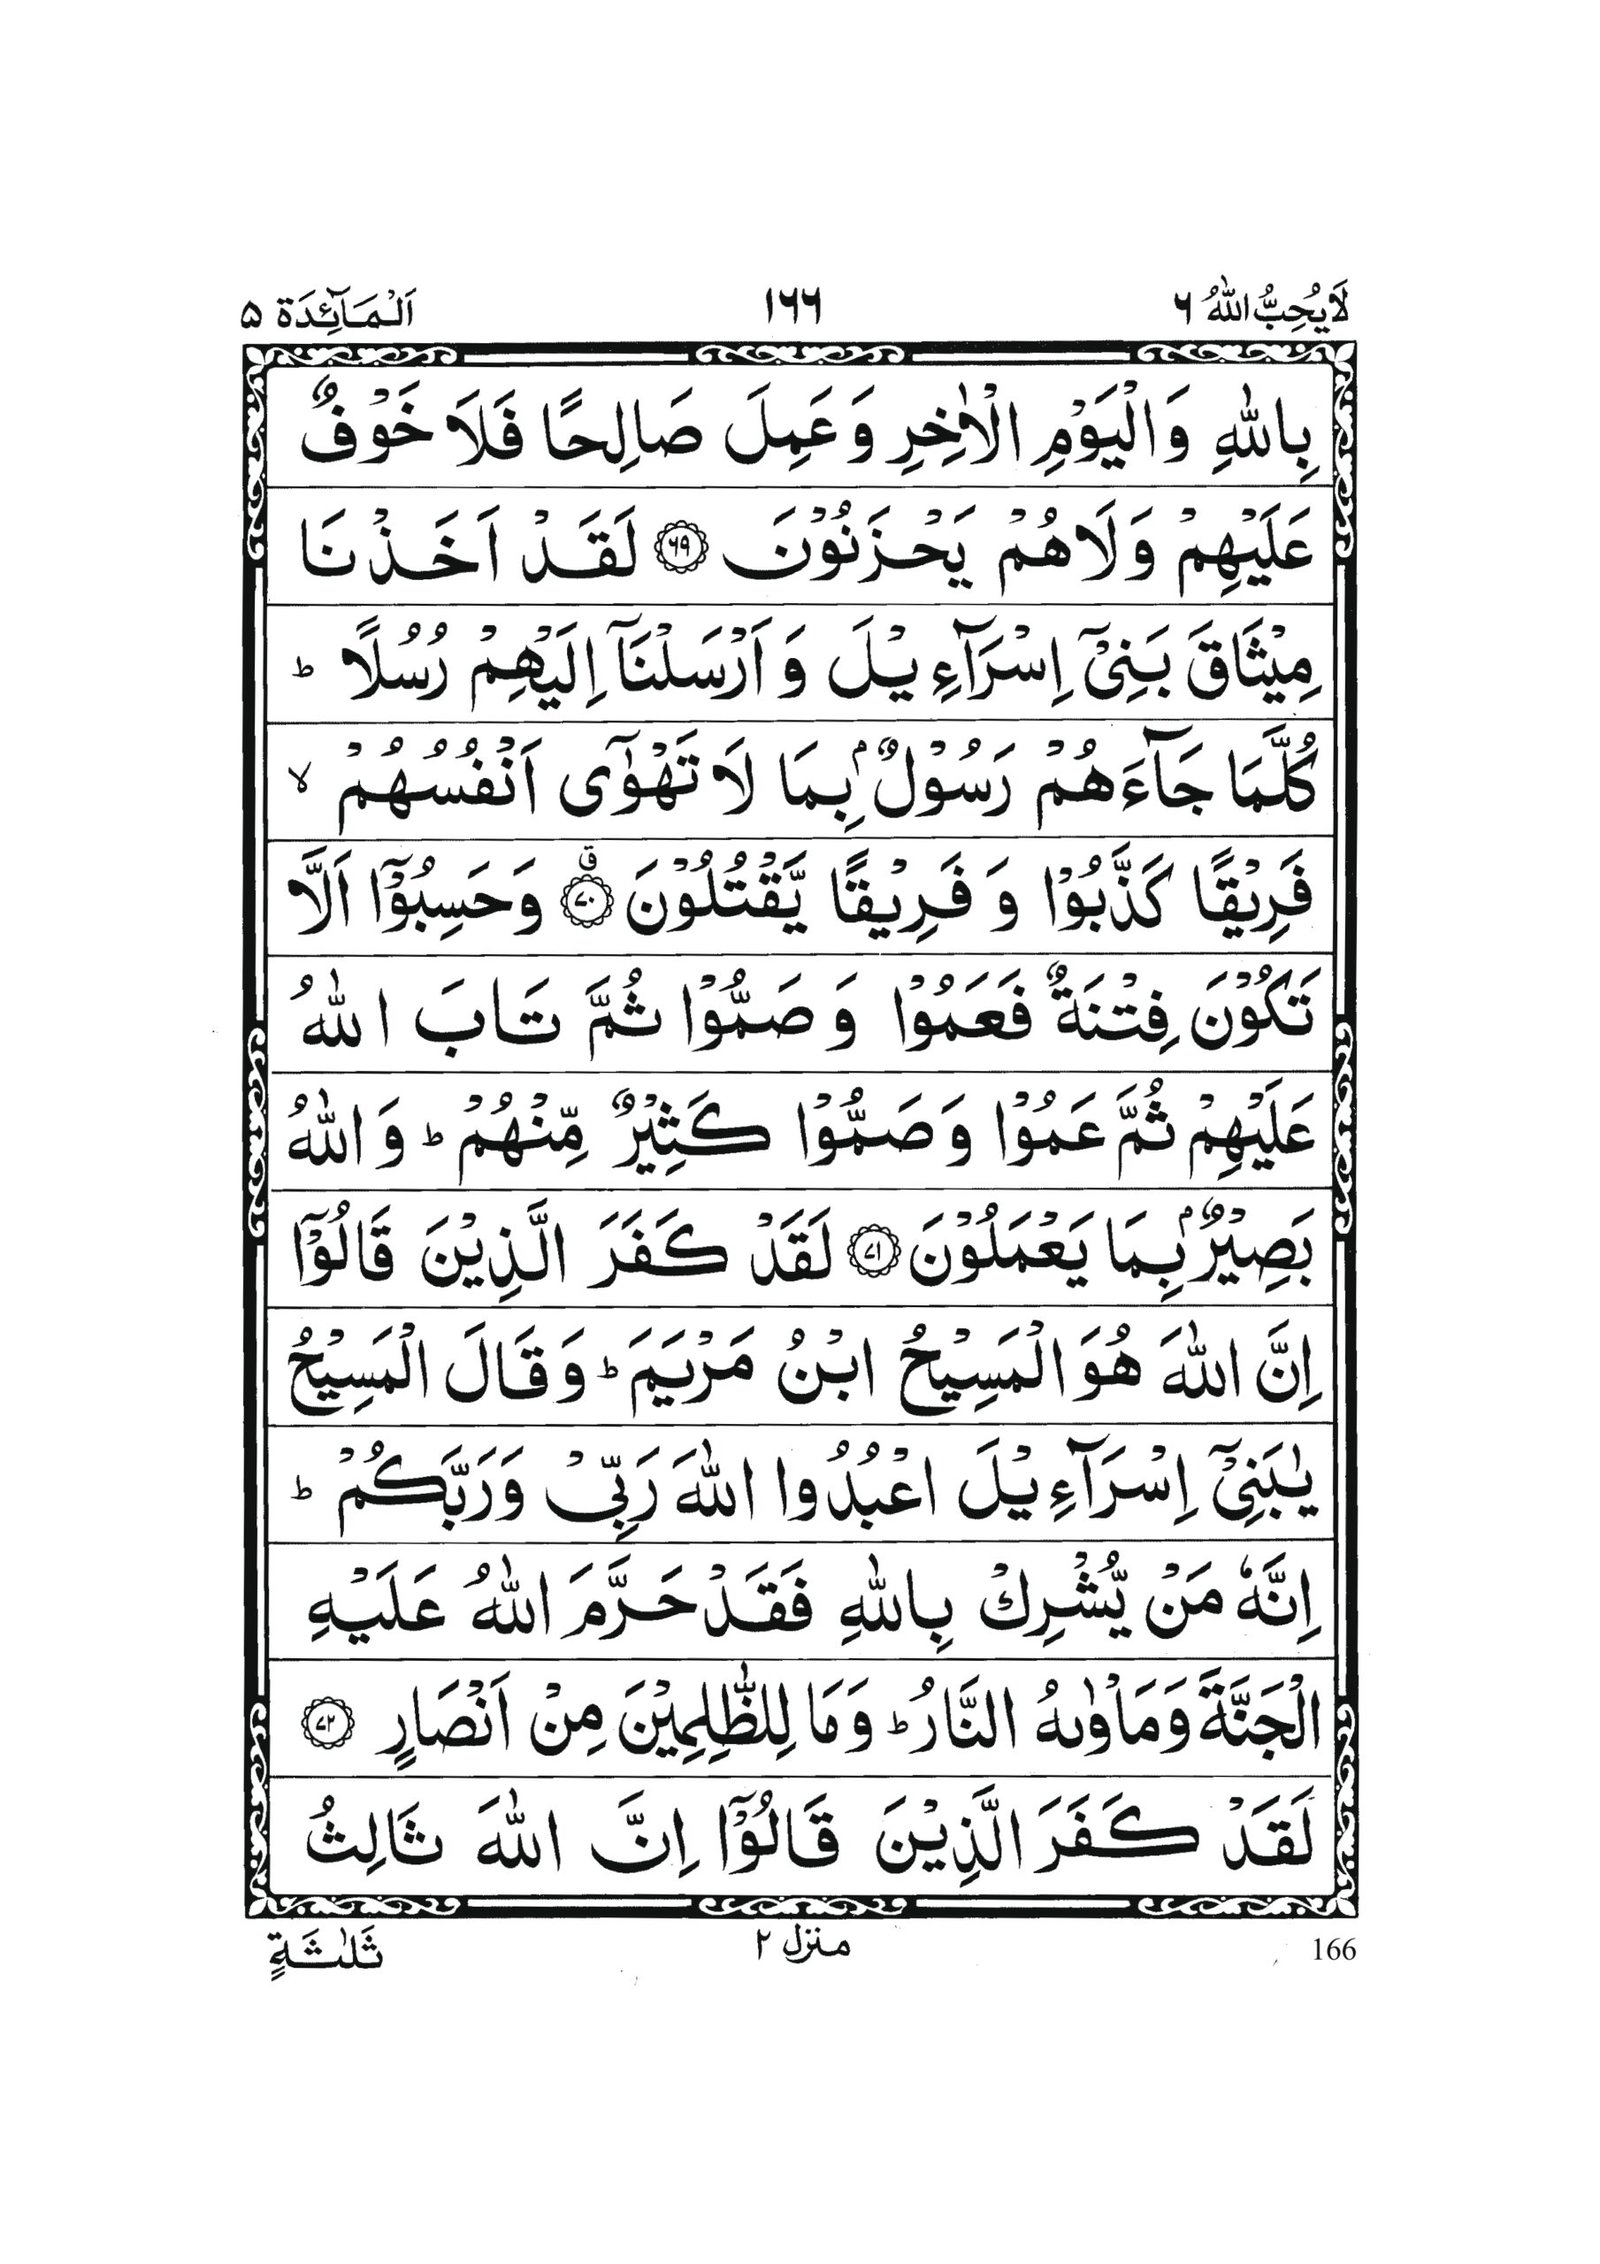 لَا يُحِبُّ اللّٰهُ ٦ ١٦٦ اَلْمَآئِدَة ۵
بِاللّٰهِ وَالْيَوْمِ الْاٰخِرِ وَعَمِلَ صَالِحًا فَلَا خَوْفٌ
عَلَيْهِمْ وَلَاهُمْ يَحْزَنُوْنَ ﴿۶۹﴾ لَقَدْ اَخَذْنَا
مِيْثَاقَ بَنِيْۤ اِسْرَآءِيْلَ وَاَرْسَلْنَاۤ اِلَيْهِمْ رُسُلًا ؕ
كُلَّمَا جَآءَهُمْ رَسُوْلٌۢ بِمَا لَا تَهْوٰۤى اَنْفُسُهُمْ ۙ
فَرِيْقًا كَذَّبُوْا وَفَرِيْقًا يَّقْتُلُوْنَ ﴿۷۰﴾ۗ وَحَسِبُوْۤا اَلَّا
تَكُوْنَ فِتْنَةٌ فَعَمُوْا وَصَمُّوْا ثُمَّ تَابَ اللّٰهُ
عَلَيْهِمْ ثُمَّ عَمُوْا وَصَمُّوْا كَثِيْرٌ مِّنْهُمْ ؕ وَاللّٰهُ
بَصِيْرٌۢ بِمَا يَعْمَلُوْنَ ﴿۷۱﴾ لَقَدْ كَفَرَ الَّذِيْنَ قَالُوْۤا
اِنَّ اللّٰهَ هُوَ الْمَسِيْحُ ابْنُ مَرْيَمَ ؕ وَقَالَ الْمَسِيْحُ
يٰبَنِيْۤ اِسْرَآءِيْلَ اعْبُدُوا اللّٰهَ رَبِّيْ وَرَبَّكُمْ ؕ
اِنَّهٗ مَنْ يُّشْرِكْ بِاللّٰهِ فَقَدْ حَرَّمَ اللّٰهُ عَلَيْهِ
الْجَنَّةَ وَمَاْوٰىهُ النَّارُ ؕ وَمَا لِلظّٰلِمِيْنَ مِنْ اَنْصَارٍ ﴿۷۲﴾
لَقَدْ كَفَرَ الَّذِيْنَ قَالُوْۤا اِنَّ اللّٰهَ ثَالِثُ
166 منزل ۲ ثَلٰثَةٍ